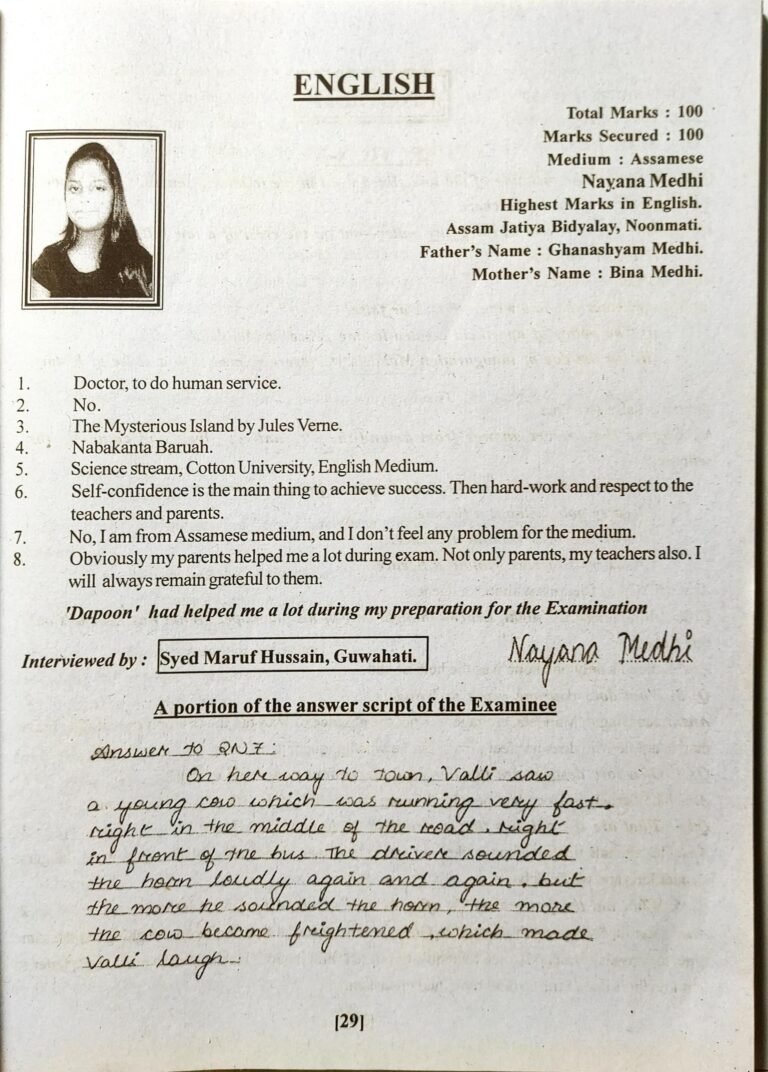 ENGLISH
Total Marks : 100
Marks Secured : 100
Medium : Assamese
Nayana Medhi
Highest Marks in English.
Assam Jatiya Bidyalay, Noonmati.
Father's Name : Ghanashyam Medhi.
Mother's Name : Bina Medhi.
1. Doctor, to do human service.
2. No.
3. The Mysterious Island by Jules Verne.
4. Nabakanta Baruah.
5. Science stream, Cotton University, English Medium.
6. Self-confidence is the main thing to achieve success. Then hard-work and respect to the
teachers and parents.
7. No, I am from Assamese medium, and I don't feel any problem for the medium.
8. Obviously my parents helped me a lot during exam. Not only parents, my teachers also. I
will always remain grateful to them.
'Dapoon' had helped me a lot during my preparation for the Examination
Interviewed by : Syed Maruf Hussain, Guwahati. Nayana Medhi
A portion of the answer script of the Examinee
Answer to QN7:
On here way to town, Valli saw
a young cow which was running very fast.
right in the middle of the road, right
in front of the bus. The driver sounded
the horn loudly again and again. but
the more he sounded the horn, the more
the cow became freightened, which made
Valli laugh.
[29]